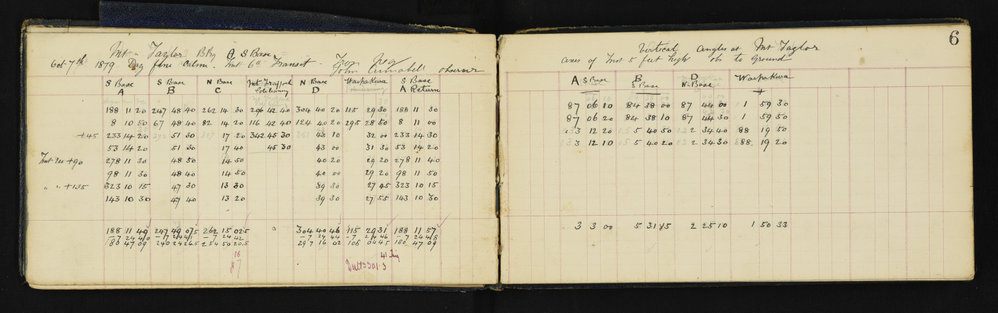 Mt Taylor Bdy A S Base
Oct 7th 1879 Day fine Calm Inst 6in Transit observer
S Base A S Base B N Base C N Base D Waipakura S Base A Return
188 11 20 247 48 40 262 14 30 296 42 40 304 40 20 115 29 30 188 11 30
8 10 50 67 48 40 82 14 20 116 42 40 124 40 20 295 28 50 8 11 00
+45 233 14 20 51 00 17 20 342 45 30 43 10 32 00 233 14 30
53 14 20 51 30 17 40 45 30 43 00 31 30 53 14 20
Inst +90 278 11 30 48 50 14 50 40 20 29 20 278 11 40
98 11 30 48 40 14 50 40 00 29 20 98 11 50
" " +135 323 10 15 47 30 13 30 39 30 27 45 323 10 15
143 10 30 47 40 13 20 39 30 27 55 143 10 30
188 11 49 247 49 07.5 262 15 02.5 304 40 46 115 29 31 188 11 57
-7 24 40 -7 24 41 -7 24 42 -7 24 44 -7 24 46 -7 24 48
180 47 09 240 24 26.5 254 50 20.5 297 16 02 108 04 45 180 47 09
6
Vertical Angles at Mt Taylor
axis of Inst 5 feet high obs to Ground
A S Base B S Base D N Base Waipakura
87 06 10 84 38 00 87 44 00 1 59 30
87 06 20 84 38 10 87 44 30 1 59 50
3 12 20 5 40 50 2 34 40 88 19 50
3 12 10 5 40 20 2 34 30 88 19 20
3 3 00 5 31 25 2 25 10 1 50 33